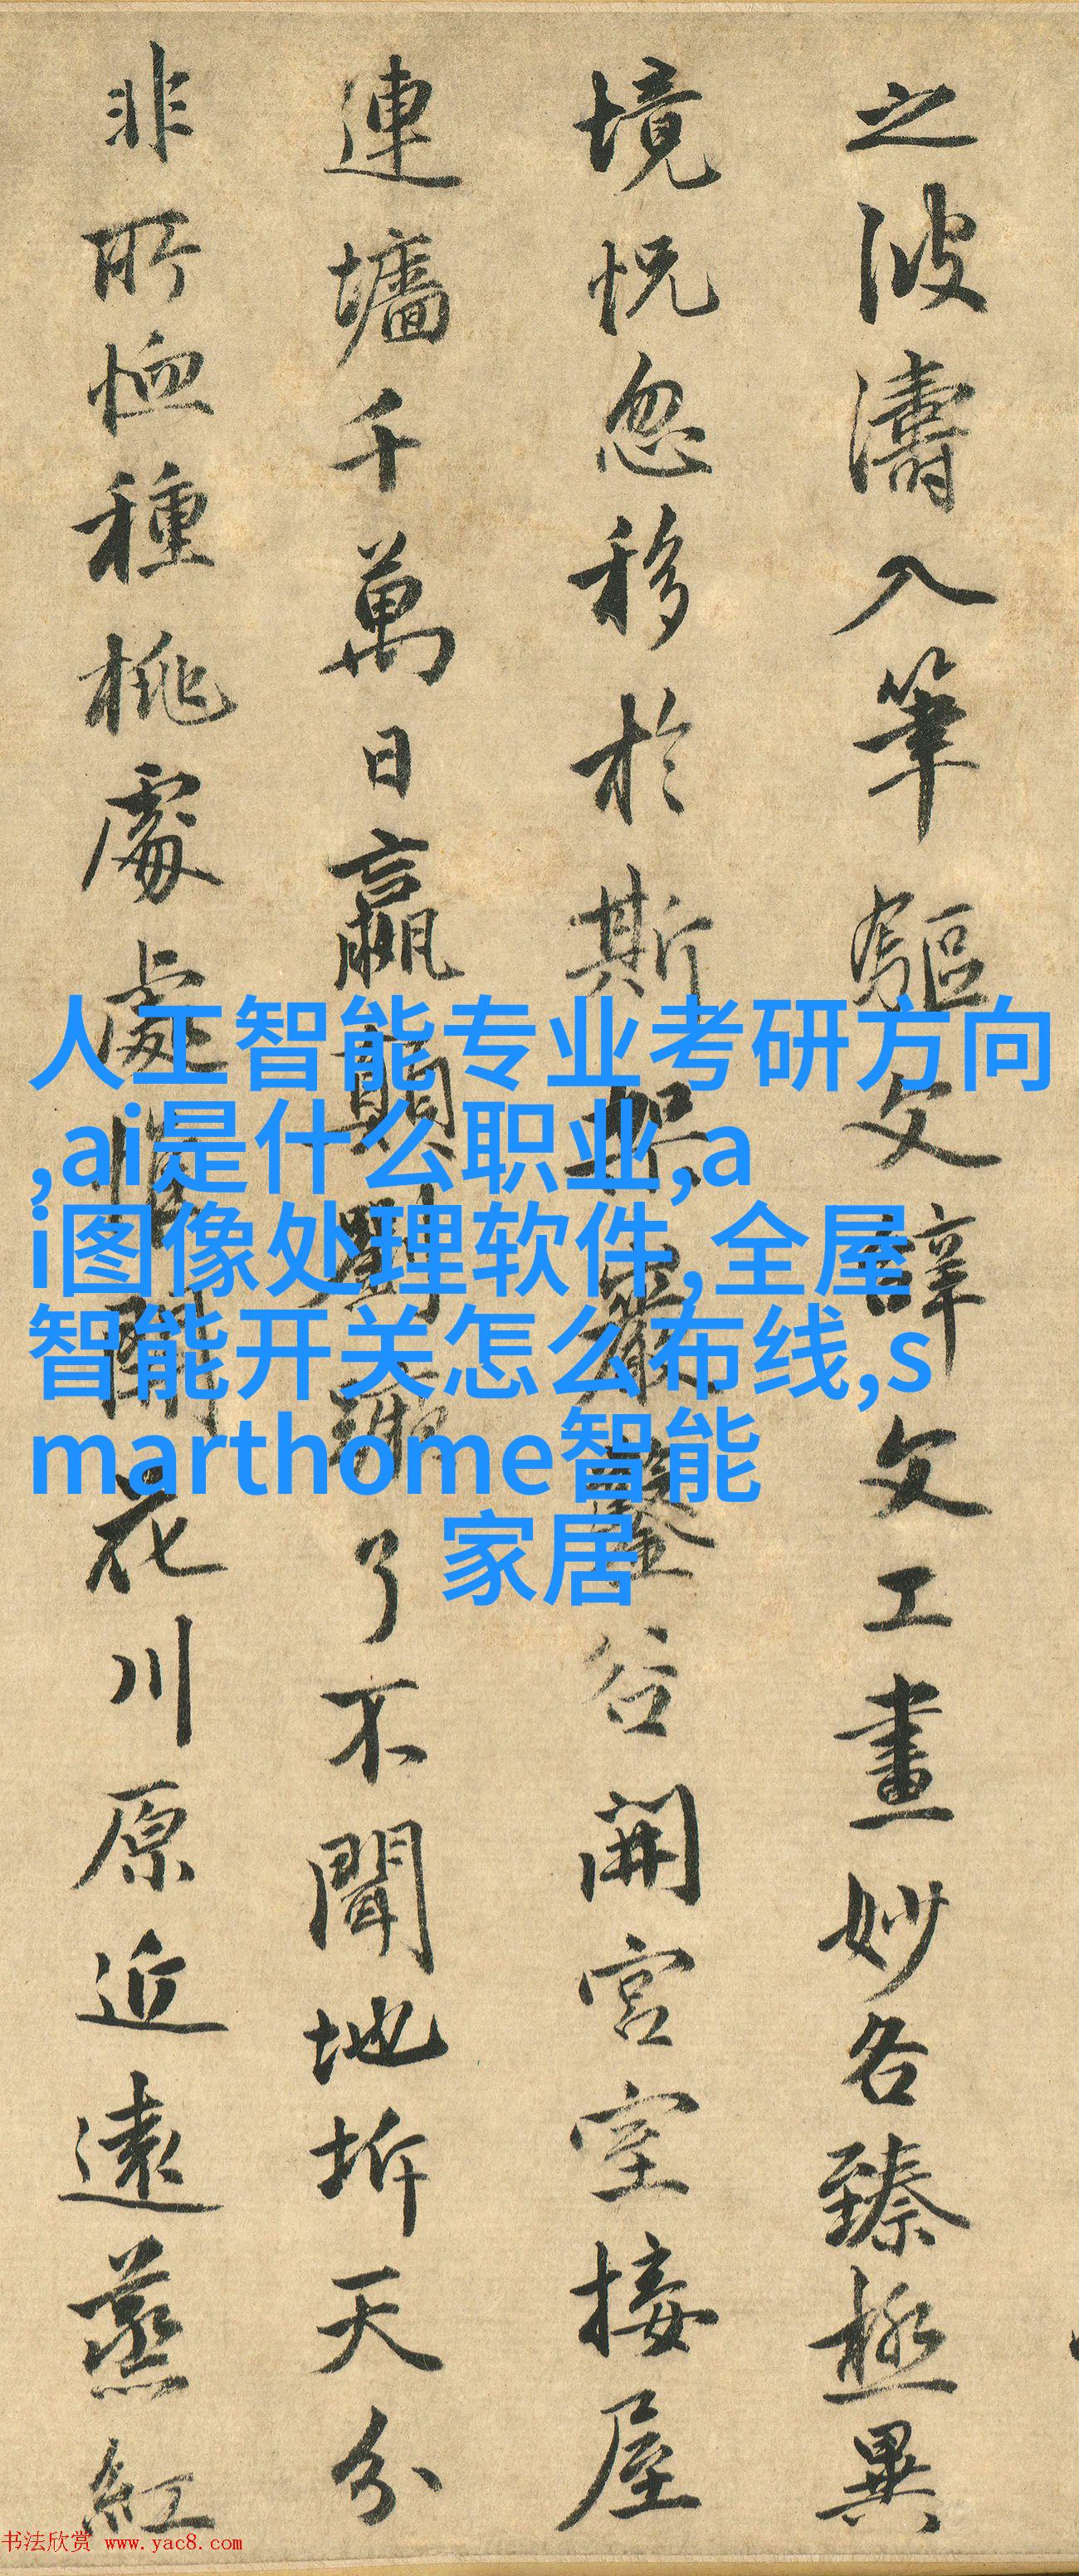 之波濤入筆驅文辭文工畫妙各臻極異
境怳忽移於斯架巖鑿谷開宮室接屋
連墻千萬日嬴顛劉蹶了不聞地坼天分
非所恤種桃處處惟開花川原近遠蒸紅
人工智能专业考研方向
,ai是什么职业,a
i图像处理软件,全屋
智能开关怎么布线,s
marthome智能
家居
书法欣赏 www.yac8.com